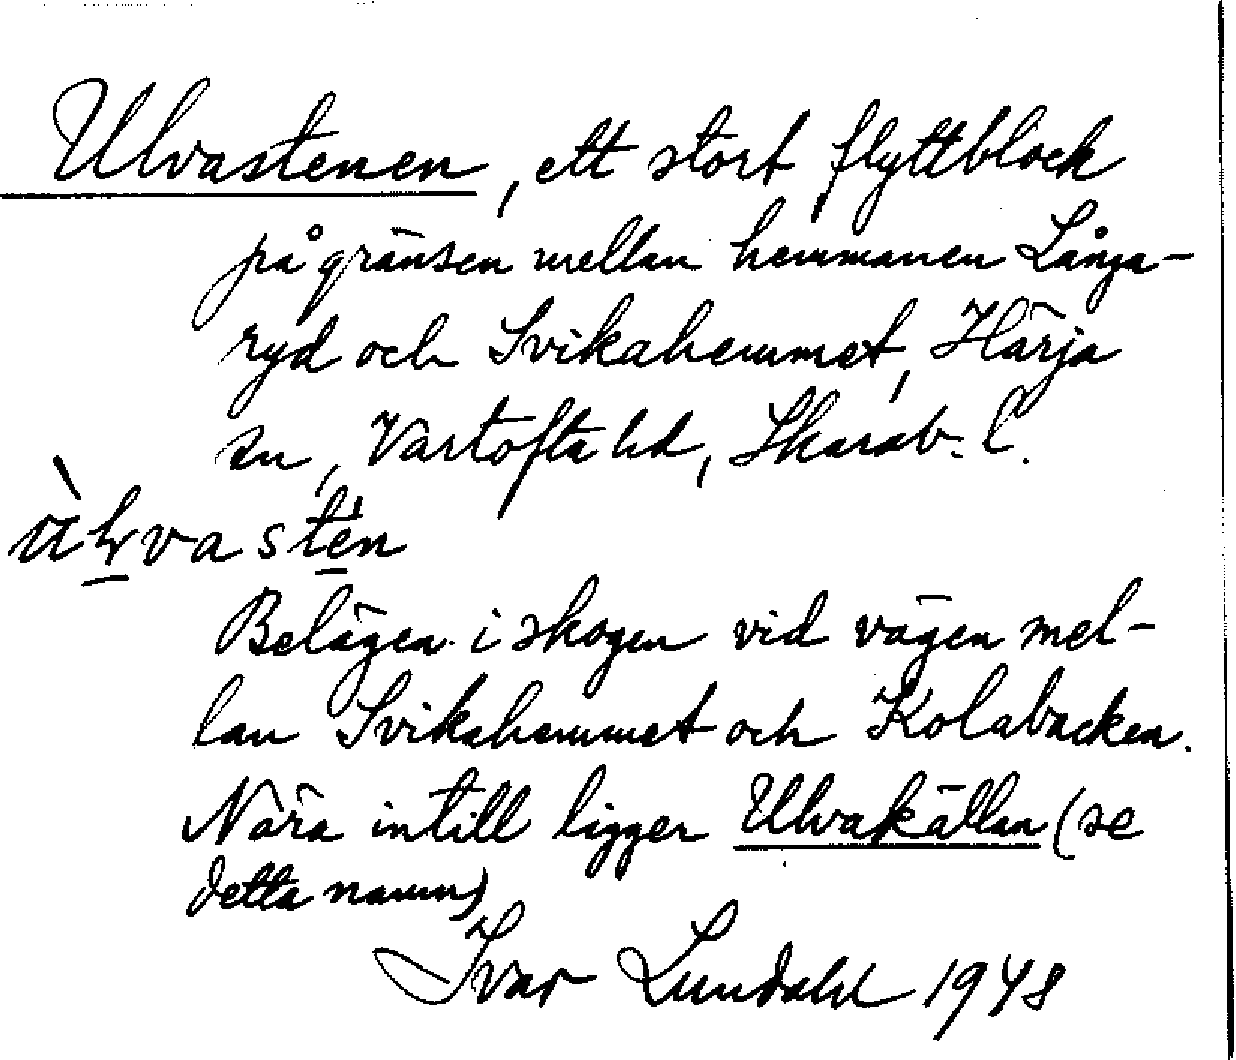 Ulvastenen, ett stort flyttblock
på gränsen mellan hemmanen Långa-
ryd och Svikahemmet, Härja
sn, Vartofta hd, Skarab. l.
Belägen i skogen vid vägen mel-
lan Svikahemmet och Kolabacken.
Nära intill ligger Ulvakällan (se
detta namn)
Ivar Lundahl 1948